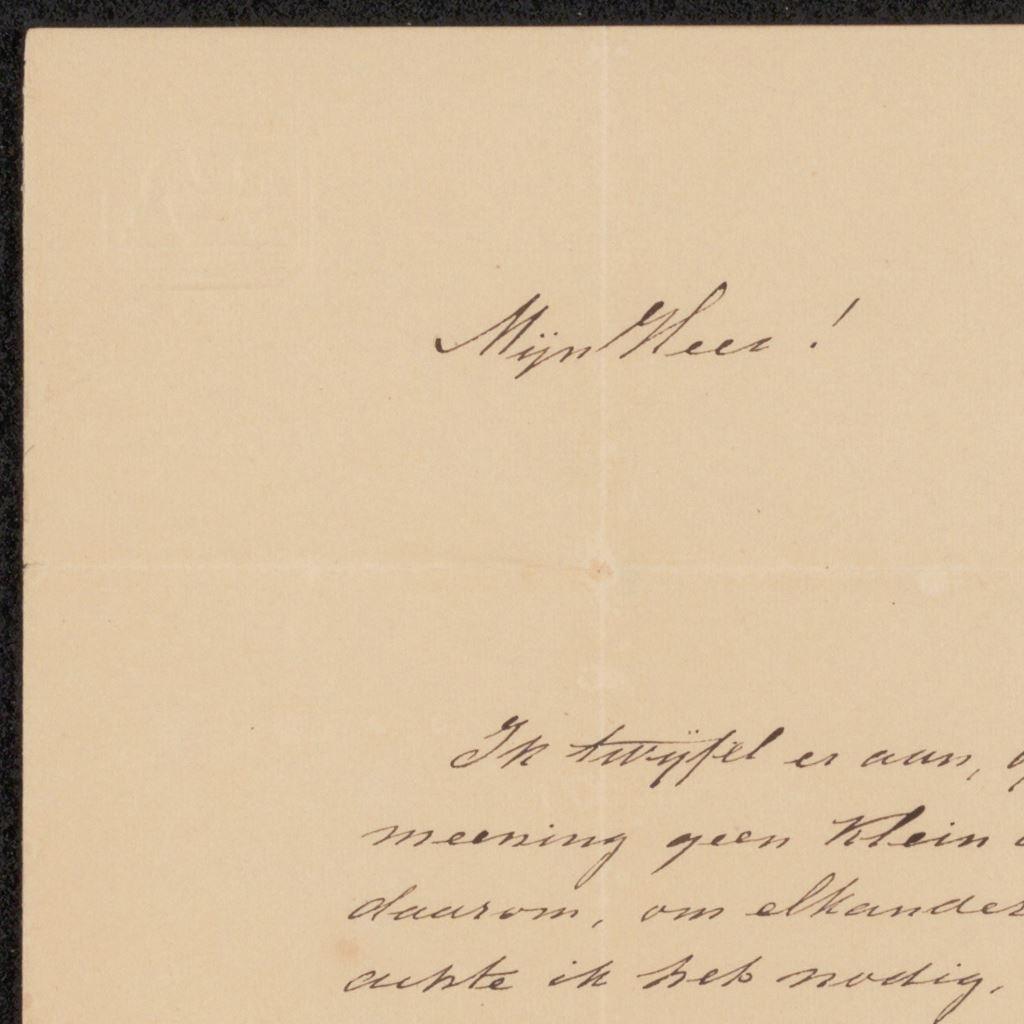 Mijn Heer!
Ik twijfel er aan,
meening geen klein
daarom, om elkander
achte ik het nodig,